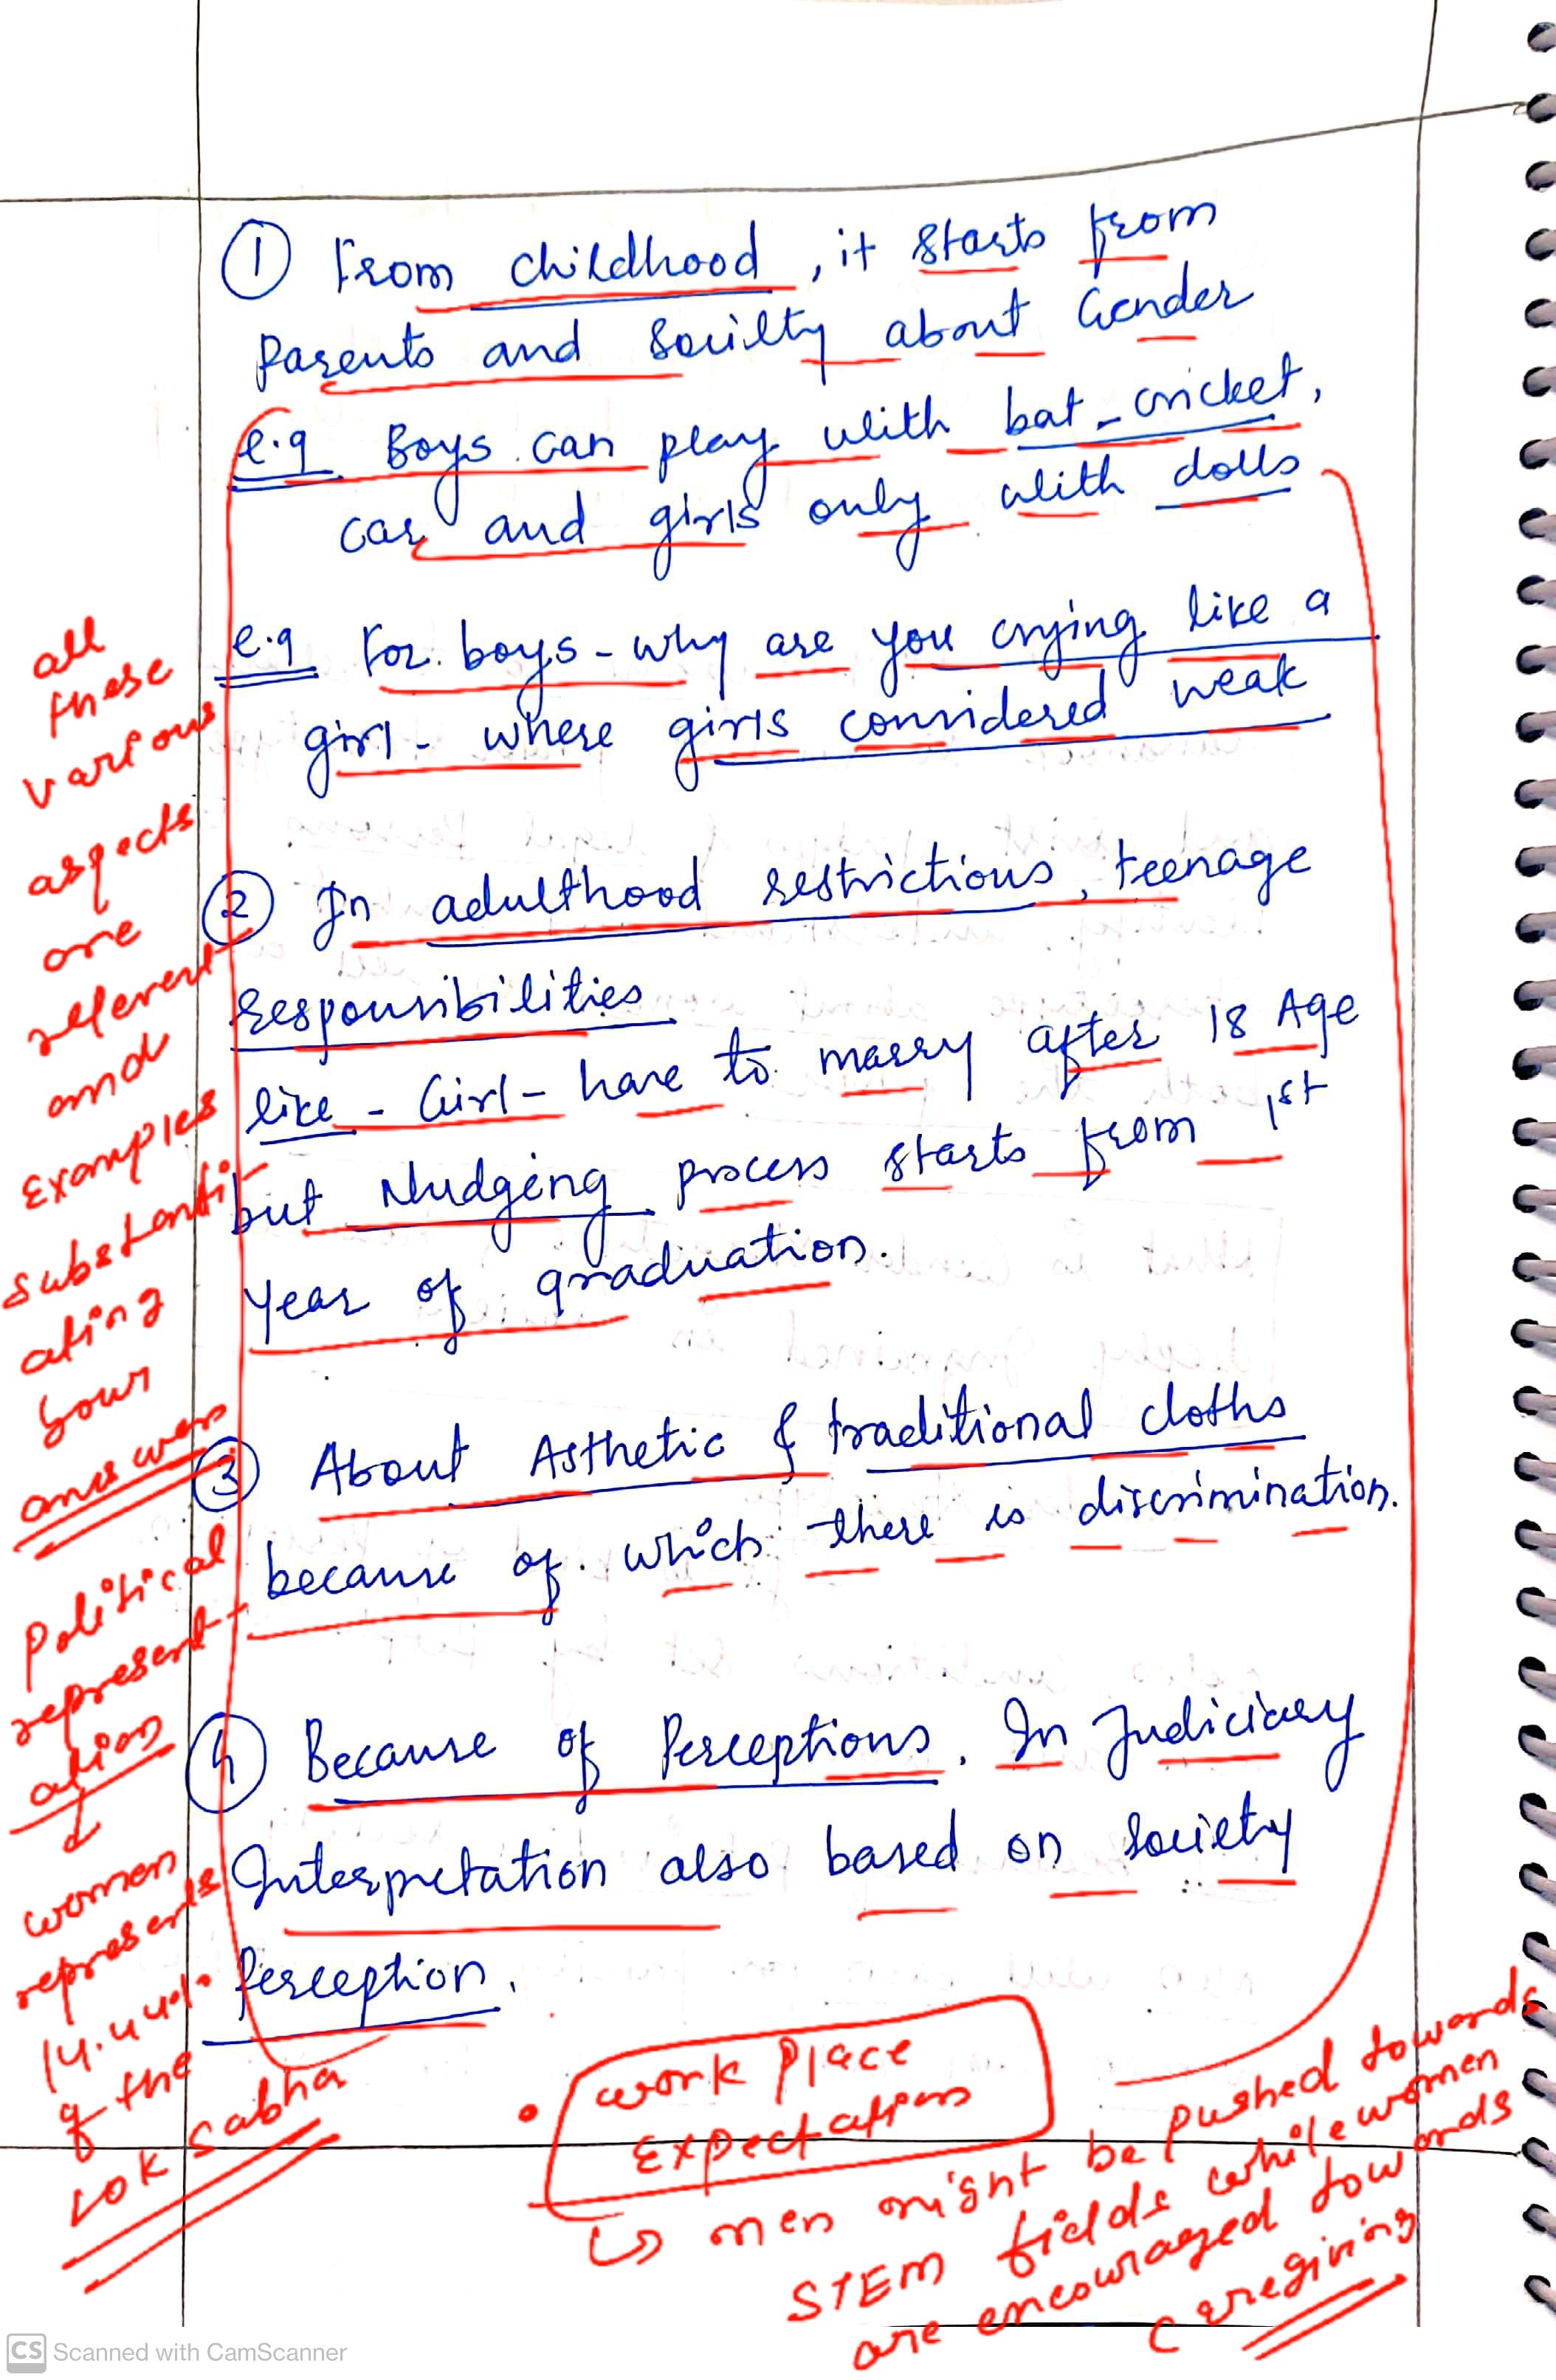 ① From childhood, it starts from
Parents and Soceilty about Gender
e.g Boys can play with bat-cricket,
car and girls only with dolls
e.g For boys - why are you crying like a
girl - where girls considered weak
② In adulthood restrictions, teenage
responsibilities
like - Girl - have to marry after 18 Age
but Nudging process starts from 1st
year of graduation.
③ About Asthetic & traditional cloths
because of which there is discrimination.
④ Because of Perceptions. In Judiciary
Interpretation also based on society
Perception.
all
these
various
aspects
are
relevent
and
Examples
substanti-
ating
your
answer
Political
represent-
ation
↓
women
represents
14.44%
of the
Lok Sabha
• work place
Expectations
↳ men might be pushed towards
STEM fields while women
are encouraged towards
caregiving
CS Scanned with CamScanner